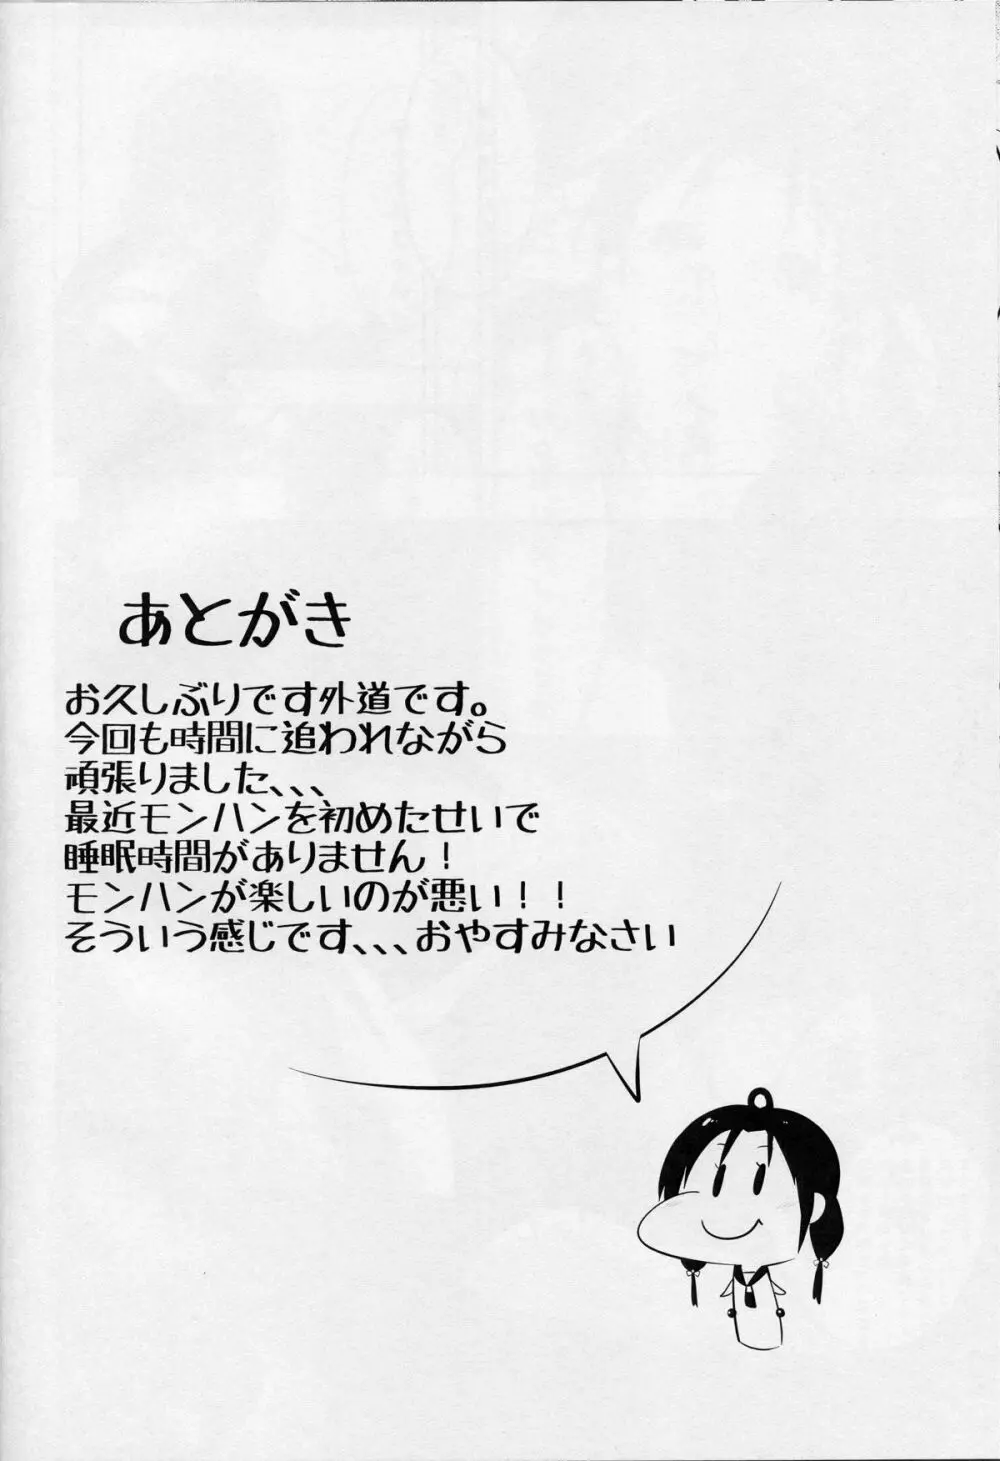 あとがき
お久しぶりです外道です。
今回も時間に追われながら
頑張りました、、、
最近モンハンを初めたせいで
睡眠時間がありません！
モンハンが楽しいのが悪い！！
そういう感じです、、、おやすみなさい